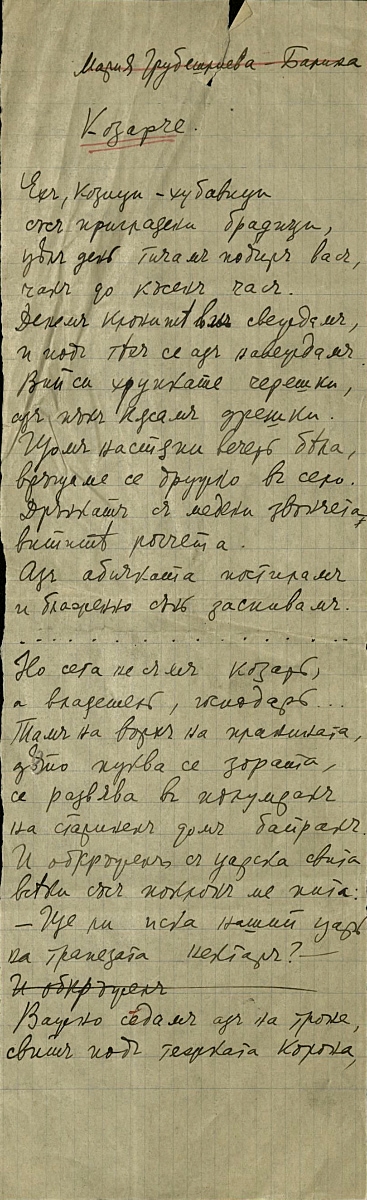 Мария Грубешлиева - Балина
Козарче.
Ехъ, козици - хубавици
със пригладени брадици,
цѣлъ день тичамъ подиръ васъ,
чакъ до късенъ часъ.
Денемъ клонитѣ
и подъ тѣхъ се азъ
Вий си хрупкате черешки,
азъ пъкъ кдсамъ дрешки.
Щомъ настѫпи вечерь бѣла,
връщаме се дружно въ село.
Дрънкатъ съ медени звънчета
вититѣ рогчета.
Азъ абичката постиламъ
и блажено сънъ заспивамъ.
. . . . . . . . . . . . . . . . . .
Но сега не съмъ козарь,
а владетель, господарь...
Тамъ на върхъ на планината,
дѣто пуква се зората,
се развява въ
на стариненъ домъ байракъ.
И обкрѫженъ съ царска свита
всѣки със поклонъ ме пита:
- Ще ли иска нашия царь
на трапезата нектаръ? -
И обкрѫженъ
Важно седамъ азъ на трона,
свитъ подъ тежката корона,